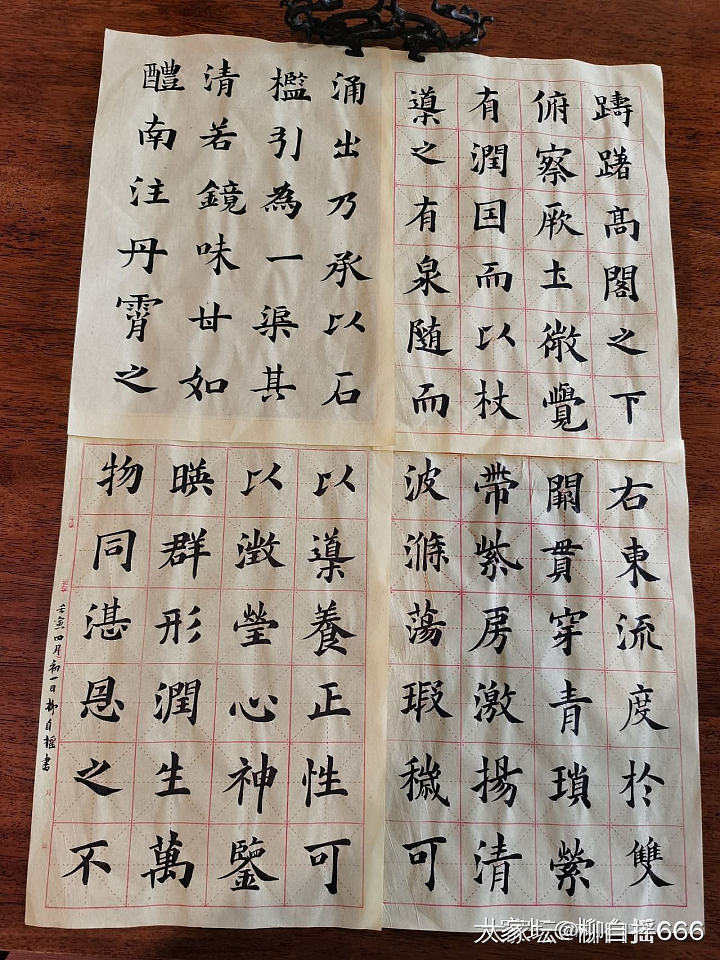 躊躇髙閣之下
俯察厥圡微覺
有潤囙而以杖
導之有泉随而
涌出乃承以石
檻引為一渠其
清若鏡味甘如
醴南注丹霄之
右東流度扵雙
闕貫穿青瑣縈
帶紫房激揚清
波滌蕩瑕穢可
以導養正性可
以澂瑩心神鑒
暎群形潤生萬
物同湛恩之不
壬寅四月初一日柳自摇書
大家坛@柳自摇666